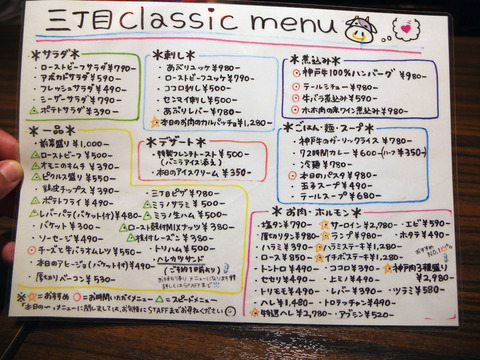 三丁目 classic menu
＊サラダ＊
・ローストビーフサラダ¥790-
・アボカドサラダ¥590-
・フレッシュサラダ¥490-
・シーザーサラダ¥790-
△ポテトサラダ¥390-
＊刺し＊
・あぶりユッケ¥980-
・ローストビーフユッケ¥790-
・ココロ刺し¥500-
・センマイ刺し¥500-
・あぶりレバー¥780-
☆本日のお肉のカルパッチョ¥1,280-
＊煮込み＊
○神戸牛100%ハンバーグ ¥980-
○テールシチュー¥980-
○牛バラ煮込み¥590-
○ホホ肉の赤ワイン煮¥980-
＊一品＊
・前菜盛り¥1,000-
△ローストビーフ¥500-
△オモニのキムチ¥390-
△ピクルス盛り¥550-
・鶏皮チップス¥390-
△ポテトフライ¥490-
△レバーパテ(バケット付)¥480-
・バケット¥300-
・ソーセージ¥490-
○チーズと牛バラオムレツ¥550-
・本日のアヒージョ(バケット付)¥490-
・厚切りベーコン¥530-
＊デザート＊
・特製フレンチトースト¥500-
(バニラアイス添え)
・本日のアイスクリーム¥350-
・三丁目ピザ¥780-
△ミミノサラミ¥500-
△ミミノ生ハム¥500-
△ロースト殻付MIXナッツ¥380-
△枝付レーズン¥350-
・トリハム¥500-
＊ごはん・麺・スープ＊
・神戸牛ガーリックライス¥780-
・72時間カレー¥600-(ハーフ¥350-)
・冷麺¥780-
○本日のパスタ¥980-
・玉ネギスープ¥480-
・テールスープ¥680-
＊お肉・ホルモン＊
・塩タン¥790-
・厚切りタン¥980-
・ハラミ¥390-
・ロース¥850-
・トントロ¥490-
・セセリ¥490-
・トリモモ¥490-
・ヘレ¥1,480-
☆サーロイン¥2,980-
☆ランプ¥980-
☆ハラミステーキ¥1,280-
☆イチボステーキ¥1,280-
・ココロ¥390-
・上ミノ¥490-
・レバー¥390-
・トロテッチャン¥490-
・アブシン¥520-
・エビ¥590-
・ホタテ¥490-
おすすめNo.1!!
☆神戸肉3種盛り
¥2,980-
・ツラミ¥580-
☆=おすすめ ○=お時間いただくメニュー △=スピードメニュー